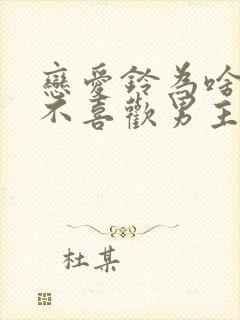 戀愛鈴為啥
不喜歡男主
杜某